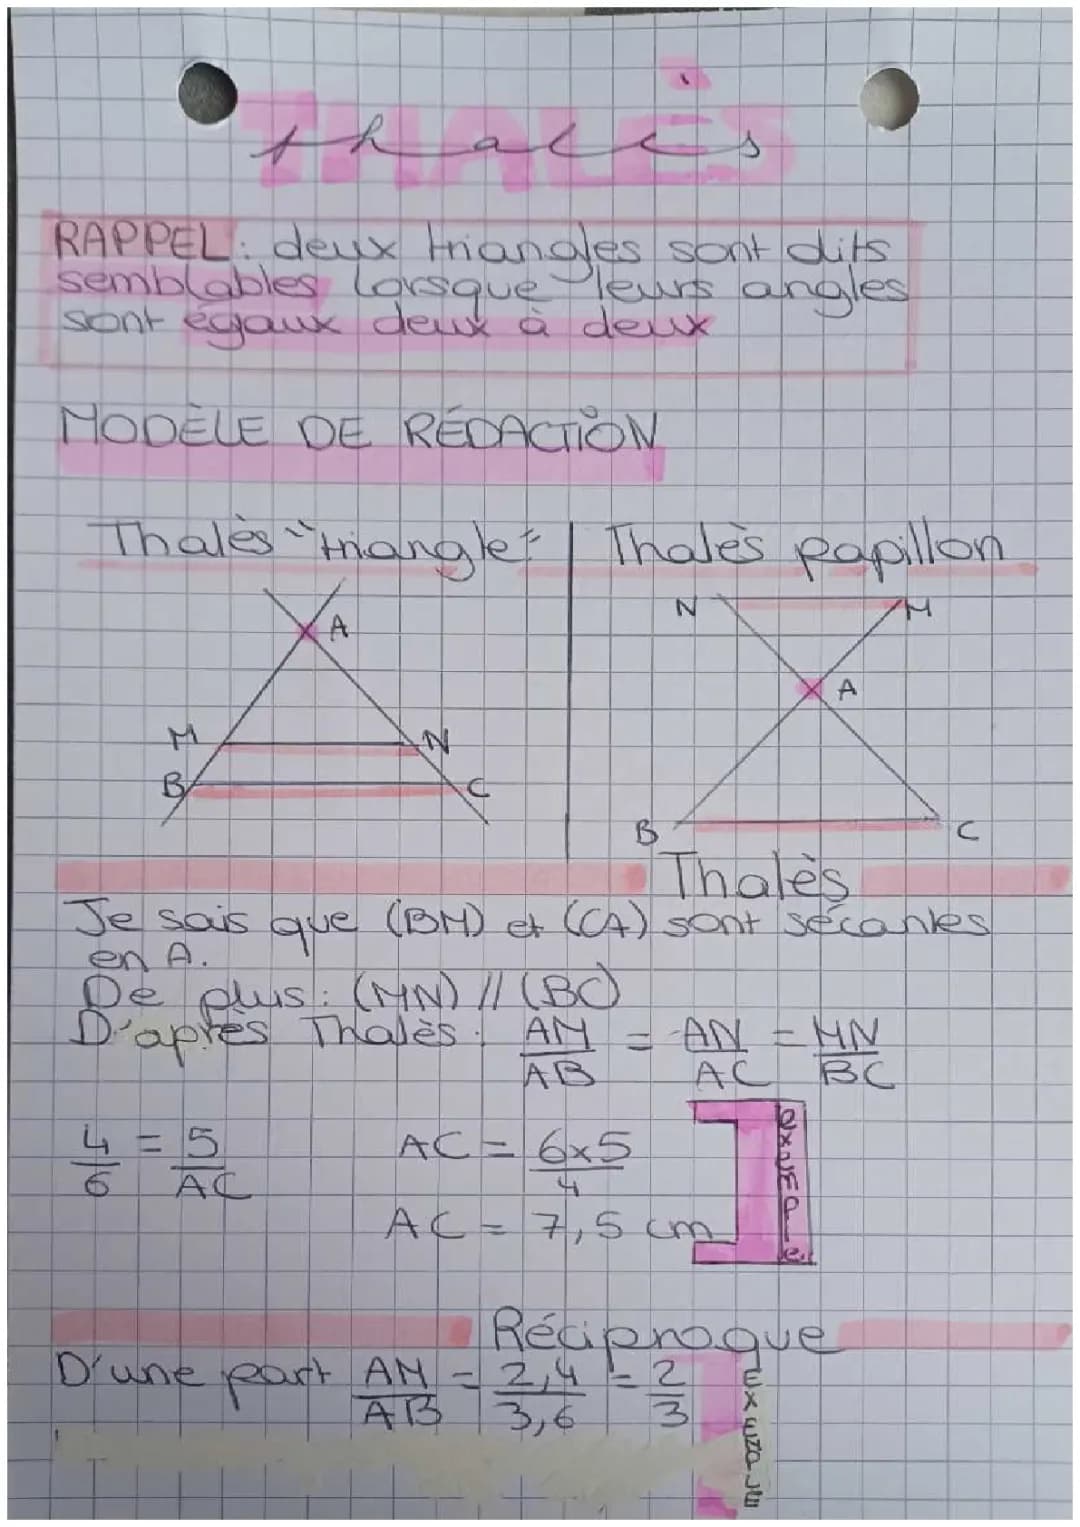 THALÈS
thalès
RAPPEL : deux triangles sont dits
semblables lorsque leurs angles
sont égaux deux à deux
MODÈLE DE RÉDACTION
Thalès "triangle"
Thalès papillon
A
M
N
B
C
N
M
A
B
C
Thalès
Je sais que (BM) et (CA) sont sécantes
en A.
De plus : (MN) // (BC)
D'après Thalès : AM/AB = AN/AC = MN/BC
4/6 = 5/AC
AC = 6x5/4
AC = 7,5 cm
exemple
Réciproque
D'une part AM/AB = 2,4/3,6 = 2/3
Exemple